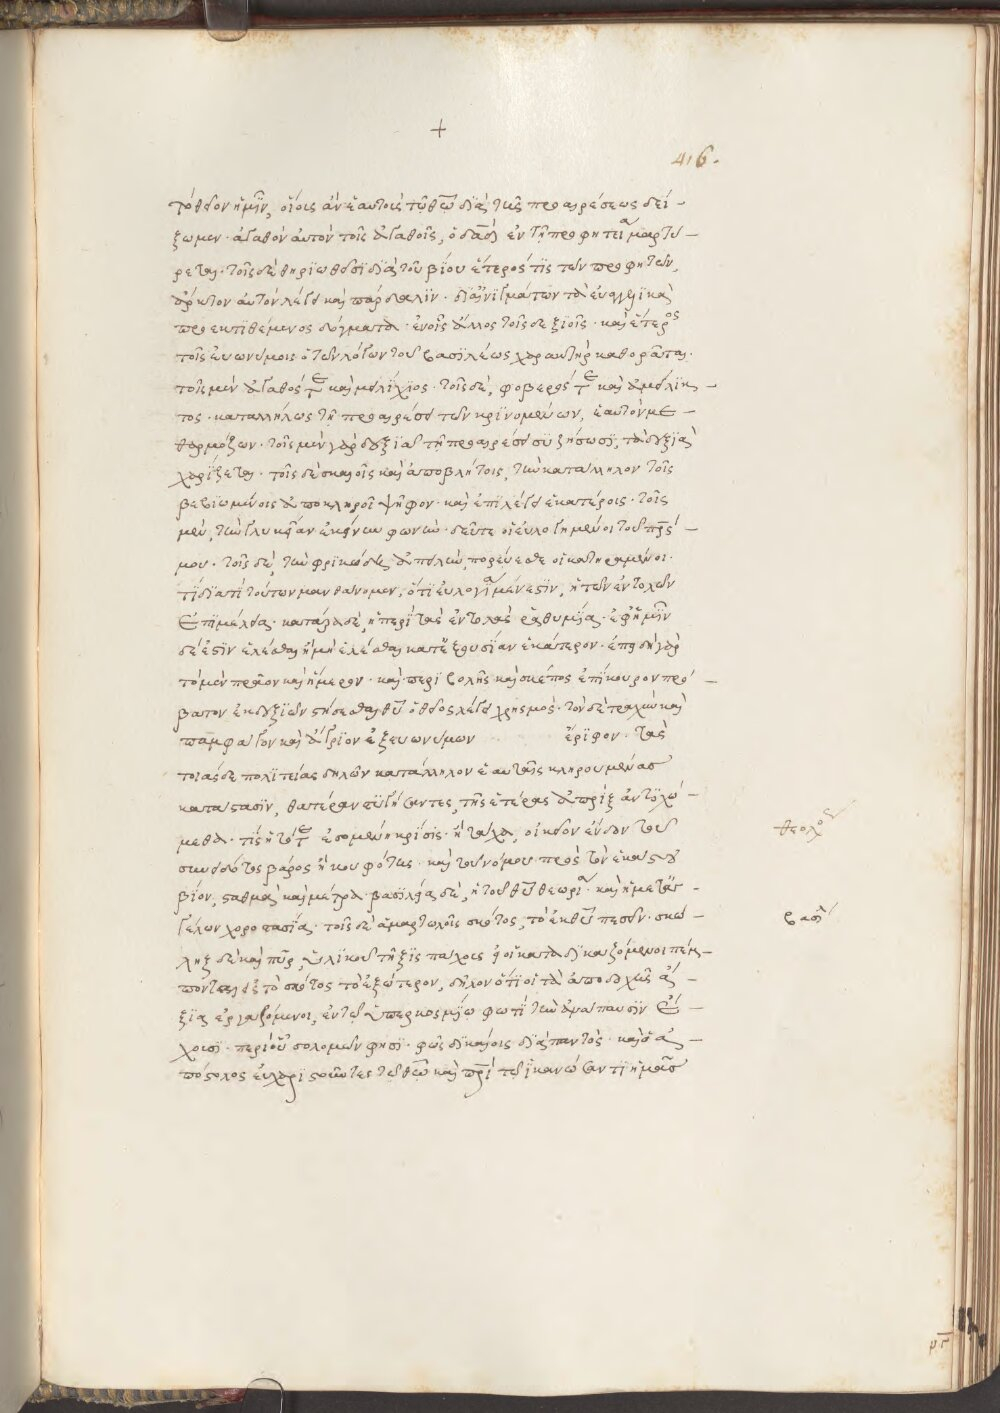 +
416.
τὸ θεῖον ἡμῖν, οἵοις ἂν ἑαυτοὺς τῷ θεῷ διὰ τῆς προαιρέσεως δεί-
ξωμεν· ἀγαθὸν αὐτὸν τοῖς ἀγαθοῖς, ὁ δαδ ἐν τῇ προφητείᾳ μαρτύ-
ρεται· τοῖς δὲ θηριώδεσι διὰ τοῦ βίου ἕτερός τις τῶν προφητῶν,
ἄρκτον αὐτὸν λέγει καὶ πάρδαλιν· δι' αἰνιγμάτων τὰ εὐαγγελικὰ
προεκτιθέμενος δόγματα· ἐν οἷς ἄλλος τοῖς δεξιοῖς· καὶ ἕτερος
τοῖς εὐωνύμοις ὁ τῶν λόγων τοῦ βασιλέως χαρακτὴρ καθορᾶται·
τοῖς μὲν ἀγαθός τε καὶ μειλίχιος· τοῖς δὲ, φοβερός τε καὶ ἀμείλικ-
τος· καταλλήλως τῇ προαιρέσει τῶν κρινομένων, ἑαυτὸν με-
θαρμόζων· τοῖς μὲν γὰρ δεξιᾷ τῇ προαιρέσει συζήσωσι, τὰ δεξιὰ
χαρίζεται· τοῖς δὲ σκαιοῖς καὶ ἀποβλήτοις, τὴν κατάλληλον τοῖς
βεβιωμένοις ἀποκληροῖ ψῆφον· καὶ ἐπιλέγει ἑκατέροις· τοῖς
μὲν, τὴν γλυκεῖαν ἐκείνην φωνὴν· δεῦτε οἱ εὐλογημένοι τοῦ πρς
μου· τοῖς δὲ, τὴν φρικώδη ἀπειλὴν, πορεύεσθε οἱ κατηραμένοι·
τί διατί τούτων μανθάνομεν; ὅτι εὐλογία μέν ἐστιν, ἡ τῶν ἐντολῶν
ἐπιμέλεια· κατάρα δὲ, ἡ περὶ τὰς ἐντολὰς ῥαθυμία· ἐφ' ἡμῖν
δέ ἐστιν ἑλέσθαι ἢ μὴ ἑλέσθαι κατ' ἐξουσίαν ἑκάτερον· ἐπειδὴ γὰρ
τὸ μὲν πρᾶον καὶ ἥμερον· καὶ περιβολῆς καὶ σκέπης ἐπίκουρον πρό-
βατον ἐκ δεξιῶν στήσεσθαι θυ ὁ θεῖος λέγει χρησμός· τὸν δὲ τραχὺν καὶ
παμφάγον καὶ ἄγριον ἐξ εὐωνύμων ἔριφον· τὰς
τοιάσδε πολιτείας δηλῶν κατάλληλον ἑαυταῖς κληρουμένας
κατάστασιν, θατέραν ζητήσαντες, τῆς ἑτέρας ἀπρὶξ ἀντιχώ-
μεθα· τίς ἡ τότε ἐσομένη κρίσις· ἢ τάχα, οἰκεῖον ἔνδον τοῦ θεολό
συνειδότος βάρος ἢ κουφότης· καὶ τοῦ νόμου πρὸς τὸν ἑκάστου
βίον, σταθμὰ καὶ μέτρα· βασιλεία δὲ, ἡ τοῦ θυ θεωρία· καὶ ἡ μετ' ἀγ-
γέλων χοροστασία· τοῖς δὲ ἁμαρτωλοῖς σκότος, τὸ ἐκ θυ πεσεῖν· σκώ- βασι
ληξ δὲ καὶ πῦρ, ὑλικοῦ τῆξις πάθους οἱ κατὰ δικαζόμενοι πέμ-
πονται εἰς τὸ σκότος τὸ ἐξώτερον, δῆλον ὅτι οἱ τὰ ἀποδοχῆς ἄ-
ξια ἐργαζόμενοι, ἐν τῷ ὑπερκοσμίῳ φωτὶ τὴν ἀνάπαυσιν ἔ-
χουσι· περὶ οὗ σολομῶν φησι· φῶς δικαίοις διαπαντός· καὶ ὁ ἀ-
πόστολος εὐχαριστοῦντες τῷ θῷ καὶ πρὶ τῷ ἱκανώσαντι ἡμᾶς